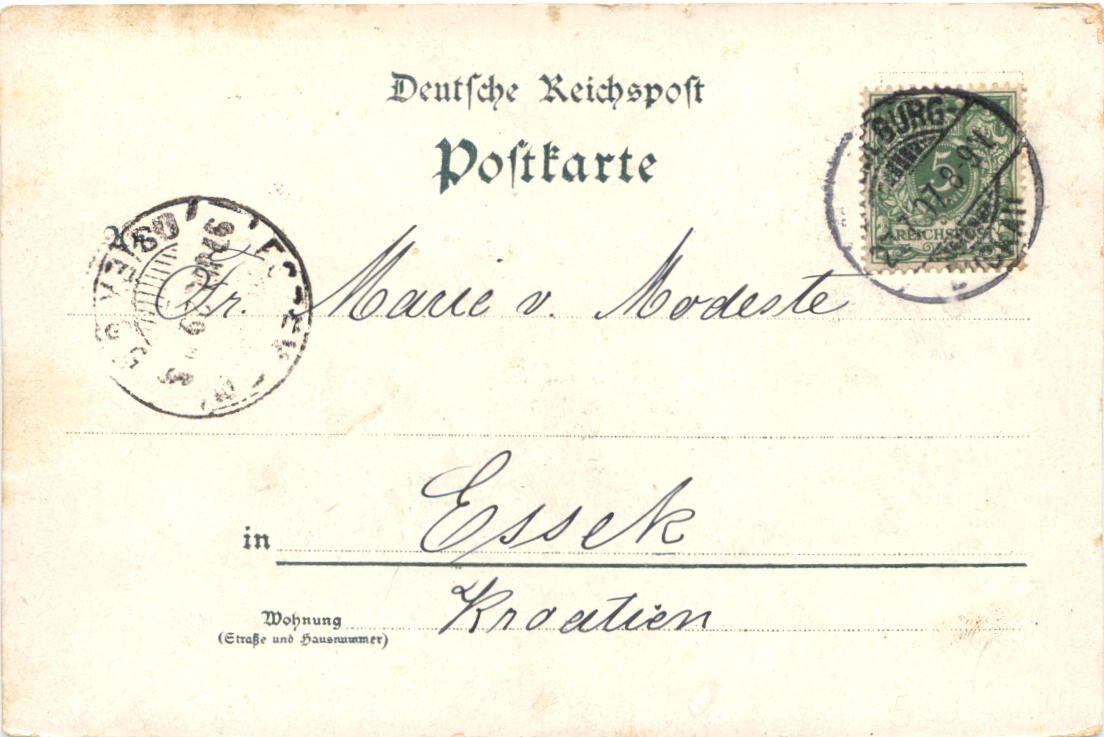 Deutsche Reichspost
Postkarte
BURG-
5
REICHSPOST
97. 8-9 V.
An
Fr. Marie v. Modeste
in Essek
Kroatien
Wohnung
(Straße und Hausnummer)